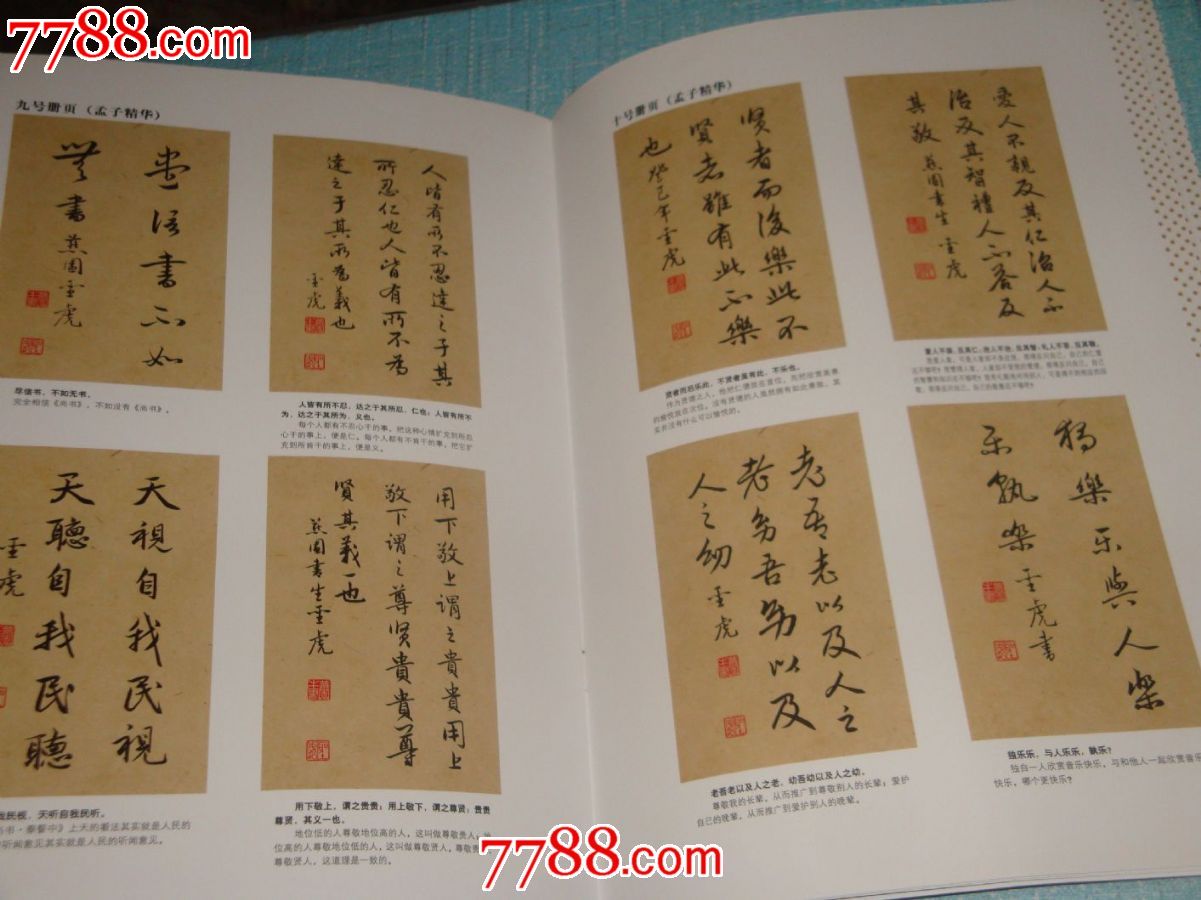 7788.com
九号册页（孟子精华）
盡信書不如
無書 燕園雲虎
尽信书，不如无书。
完全相信《尚书》，不如没有《尚书》。
人皆有所不忍達之于其
所忍仁也人皆有所不為
達之于其所為義也
雲虎
人皆有所不忍，达之于其所忍，仁也；人皆有所不
为，达之于其所为，义也。
每个人都有不忍心干的事，把这种心情扩充到所忍
心干的事上，便是仁。每个人都有不肯干的事，把它扩
充到所肯干的事上，便是义。
天視自我民視
天聽自我民聽
雲虎
我民视，天听自我民听。
尚书·泰誓中》上天的看法其实就是人民的
的听闻意见其实就是人民的听闻意见。
用下敬上謂之貴貴用上
敬下謂之尊賢貴貴尊
賢其義一也
燕園書生雲虎
用下敬上，谓之贵贵；用上敬下，谓之尊贤；贵贵
尊贤，其义一也。
地位低的人尊敬地位高的人，这叫做尊敬贵人；地
位高的人尊敬地位低的人，这叫做尊敬贤人。尊敬贵人
尊敬贤人，这道理是一致的。
十号册页（孟子精华）
賢者而後樂此不
賢者雖有此不樂
也 癸巳年雲虎
贤者而后乐此，不贤者虽有此，不乐也。
作为贤德之人，他把仁德放在首位，而把欣赏美景
的愉悦放在次位。没有贤德的人虽然拥有如此景致，其
实并没有什么可以愉悦的。
愛人不親反其仁治人不
治反其智禮人不答反
其敬 燕園書生 雲虎
爱人不亲，反其仁；治人不治，反其智；礼人不答，反其敬。
老吾老以及人之
老幼吾幼以及
人之幼 雲虎
老吾老以及人之老，幼吾幼以及人之幼。
尊敬我的长辈，从而推广到尊敬别人的长辈；爱护
自己的晚辈，从而推广到爱护别人的晚辈。
獨樂樂與人樂
樂孰樂 雲虎書
独乐乐，与人乐乐，孰乐？
独自一人欣赏音乐快乐，与和他人一起欣赏音乐
快乐，哪个更快乐？
7788.com